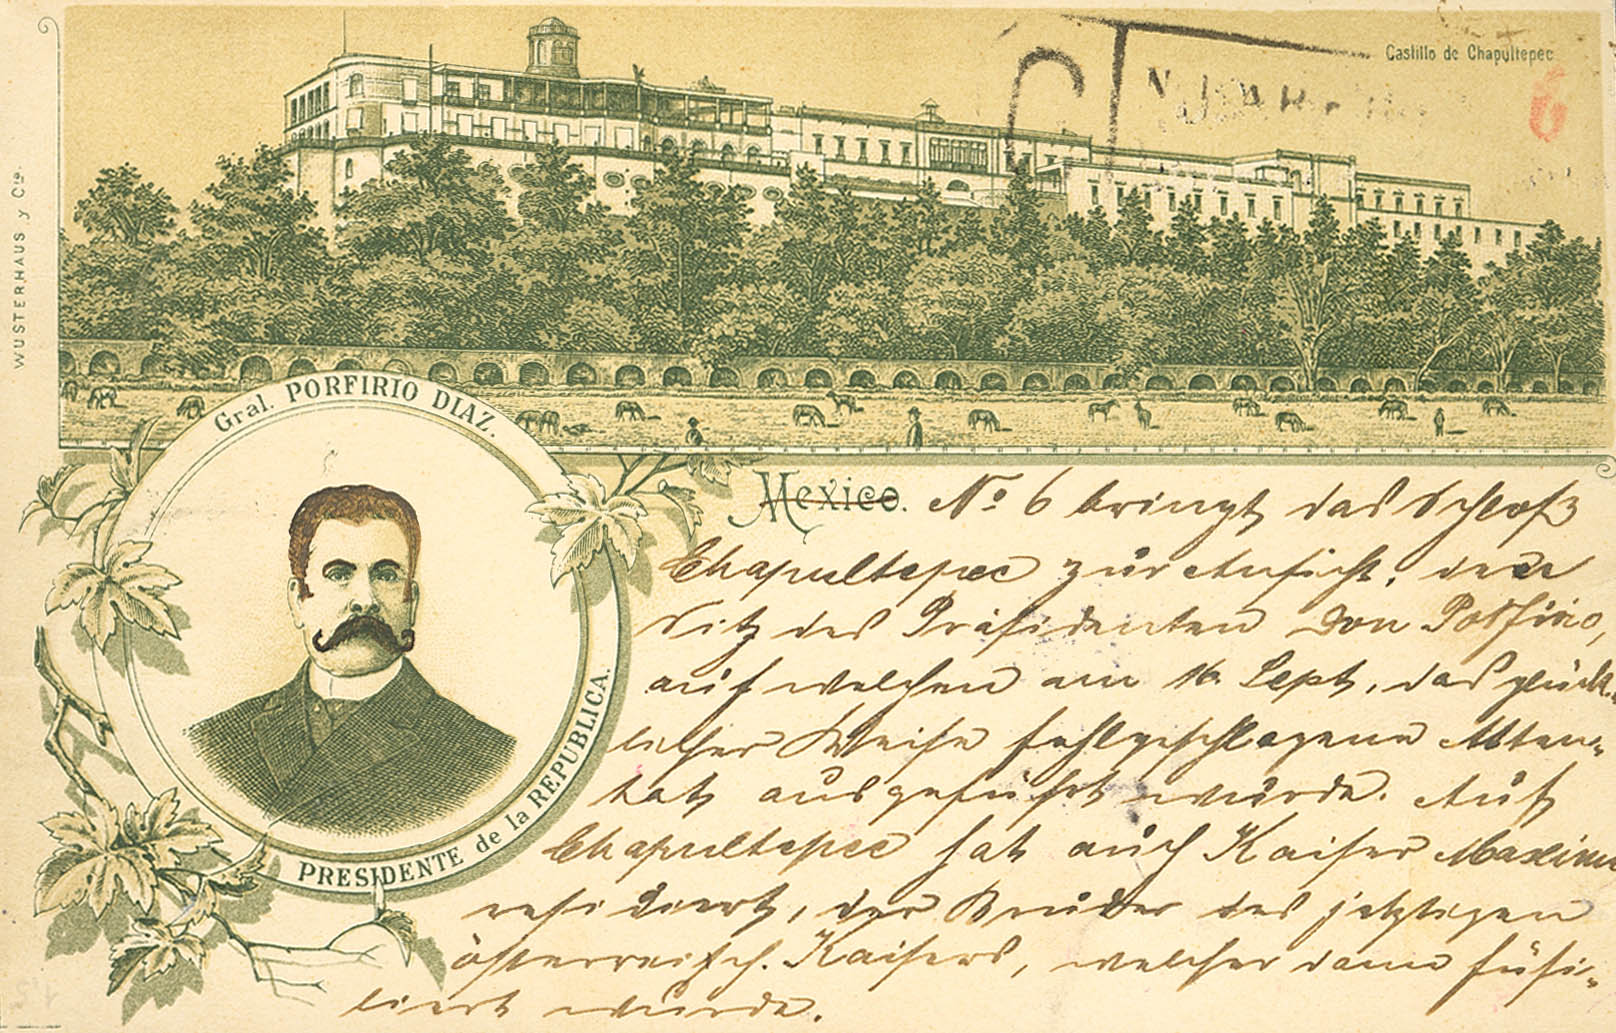 Castillo de Chapultepec
WUSTERHAUS y Cia.
Gral. PORFIRIO DIAZ.
PRESIDENTE de la REPUBLICA.
Mexico. No 6 bringt das Schloß
Chapultepec zur Ansicht, den
Sitz des Präsidenten Don Porfirio,
auf welchen am 16 Sept, das glück-
licher Weise fehlgeschlagene Atten-
tat ausgeführt wurde. Auf
Chapultepec hat auch Kaiser Maxim
residiert, der Bruder des jetztigen
österreisch. Kaisers, welcher dann füsi-
liert wurde.